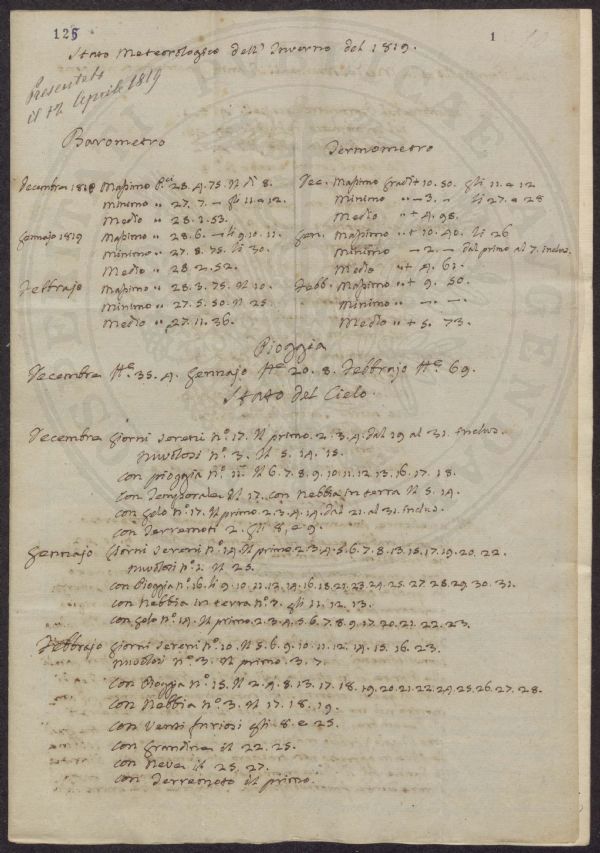 125
1
Stato Meteorologico dell' Inverno del 1819.
Presentato
il 12 Aprile 1819
Barometro
Decembre 1818 Massimo 28. 4. 75. Il dì 8.
Minimo " 27. 7. — gli 11. e 12.
Medio " 28. 2. 53.
Gennajo 1819 Massimo " 28. 6. — li 9. 10. 11.
Minimo " 27. 8. 75. li 30.
Medio " 28. 2. 52.
Febbrajo Massimo " 28. 3. 75. Il 10.
Minimo " 27. 5. 50. Il 25.
Medio " 27. 11. 36.
Termometro
Dec. Massimo Gradi + 10. 50. gli 11. e 12
Minimo " — 3. — li 27. e 28
Medio " + 4. 98.
Gen. Massimo " + 10. 40. li 26
Minimo — 2. — dal primo al 7. inclus.
Medio " + 4. 61.
Febb. Massimo " + 9. 50.
Minimo " — — .
Medio " + 5. 73.
Pioggia
Decembre 35. 4. Gennajo 20. 8. Febbrajo 69.
Stato del Cielo.
Decembre Giorni sereni n.º 17. Il primo. 2. 3. 4. dal 19 al 31. inclus.
Nuvolosi n.º 3. Il 5. 14. 15.
Con pioggia n.º 11. Il 6. 7. 8. 9. 10. 11. 12. 13. 16. 17. 18.
Con Temporale Il 17. con Nebbia in terra Il 5. 14.
Con gelo n.º 17. Il primo 2. 3. 4. 14. dal 21. al 31. inclus.
Con Terremoti 2. gli 8, e 9.
Gennajo Giorni sereni n.º 14. Il primo 2. 3. 4. 5. 6. 7. 8. 13. 15. 17. 19. 20. 22.
Nuvolosi n.º 1. Il 25.
Con Pioggia n.º 16. li 9. 10. 11. 12. 14. 16. 18. 21. 23. 24. 25. 27. 28. 29. 30. 31.
Con Nebbia in terra n.º 3. gli 11. 12. 13.
Con gelo n.º 14. Il primo 2. 3. 4. 5. 6. 7. 8. 9. 17. 20. 21. 22. 23.
Febbrajo Giorni sereni n.º 10. Il 5. 6. 9. 10. 11. 12. 14. 15. 16. 23.
Nuvolosi n.º 3. Il primo. 3. 7.
Con Pioggia n.º 15. Il 2. 4. 8. 13. 17. 18. 19. 20. 21. 22. 24. 25. 26. 27. 28.
Con Nebbia n.º 3. Il 17. 18. 19.
Con Venti furiosi gli 8. e 25.
Con Grandine il 22. 25.
Con Neve il 25. 27.
Con Terremoto il primo.